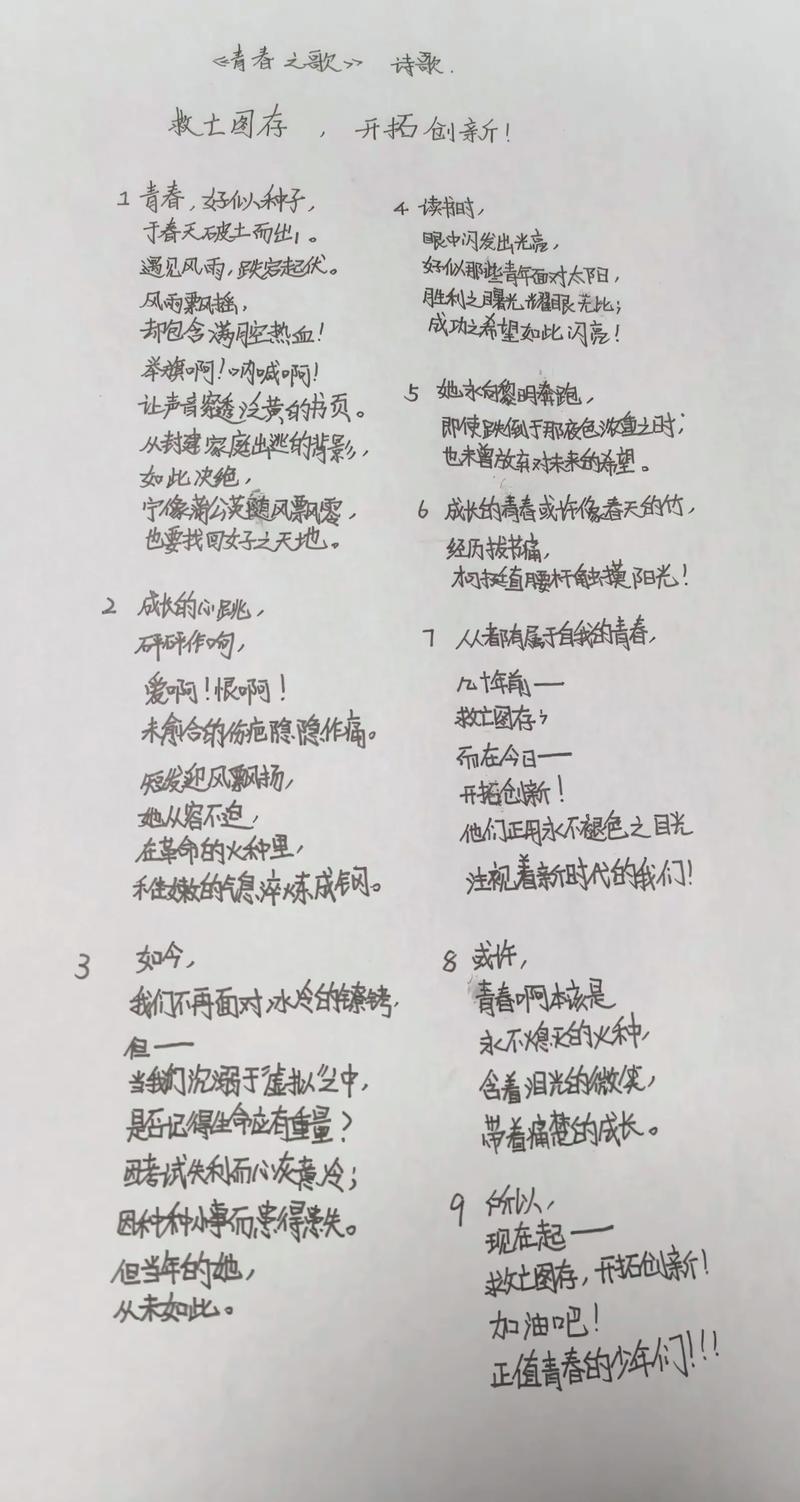 《青春之歌》 诗歌.
救亡图存 , 开拓创新!
1 青春,好似人种子,
于春天破土而出。
遇见风雨,跌宕起伏。
风雨飘摇,
却包含满腔热血!
举旗啊!呐喊啊!
让声音穿透泛黄的书页。
从封建家庭出逃的背影,
如此决绝,
宁像蒲公英随风飘零,
也要找回好之天地。
2 成长的心跳,
砰砰作响,
爱啊!恨啊!
未愈合的伤疤隐隐作痛。
短发迎风飘扬,
她从容不迫,
在革命的火种里,
稚嫩的气息淬炼成钢。
3 如今,
我们不再面对冰冷的镣铐,
但——
当我们沉溺于“虚拟”之中,
是否记得生命应有重量?
因考试失利而心灰意冷;
因种种小事而患得患失。
但当年的她,
从未如此。
4 读书时,
眼中闪发出光亮,
好似那些青年面对太阳,
胜利之曙光耀眼无比;
成功之希望如此闪亮!
5 她永向黎明奔跑,
即使跌倒于那夜色浓重之时;
也未曾放弃对未来的希望。
6 成长的青春或许像春天的竹,
经历拔节痛,
挺直腰杆触摸阳光!
7 人人都有属于自我的青春,
几十年前——
救亡图存;
而在今日——
开拓创新!
他们正用永不褪色之目光
注视着新时代的我们!
8 或许,
青春啊本该是
永不熄灭的火种,
含着泪光的微笑,
带着痛楚的成长。
9 所以,
现在起——
救亡图存,开拓创新!
加油吧!
正值青春的少年们!!!